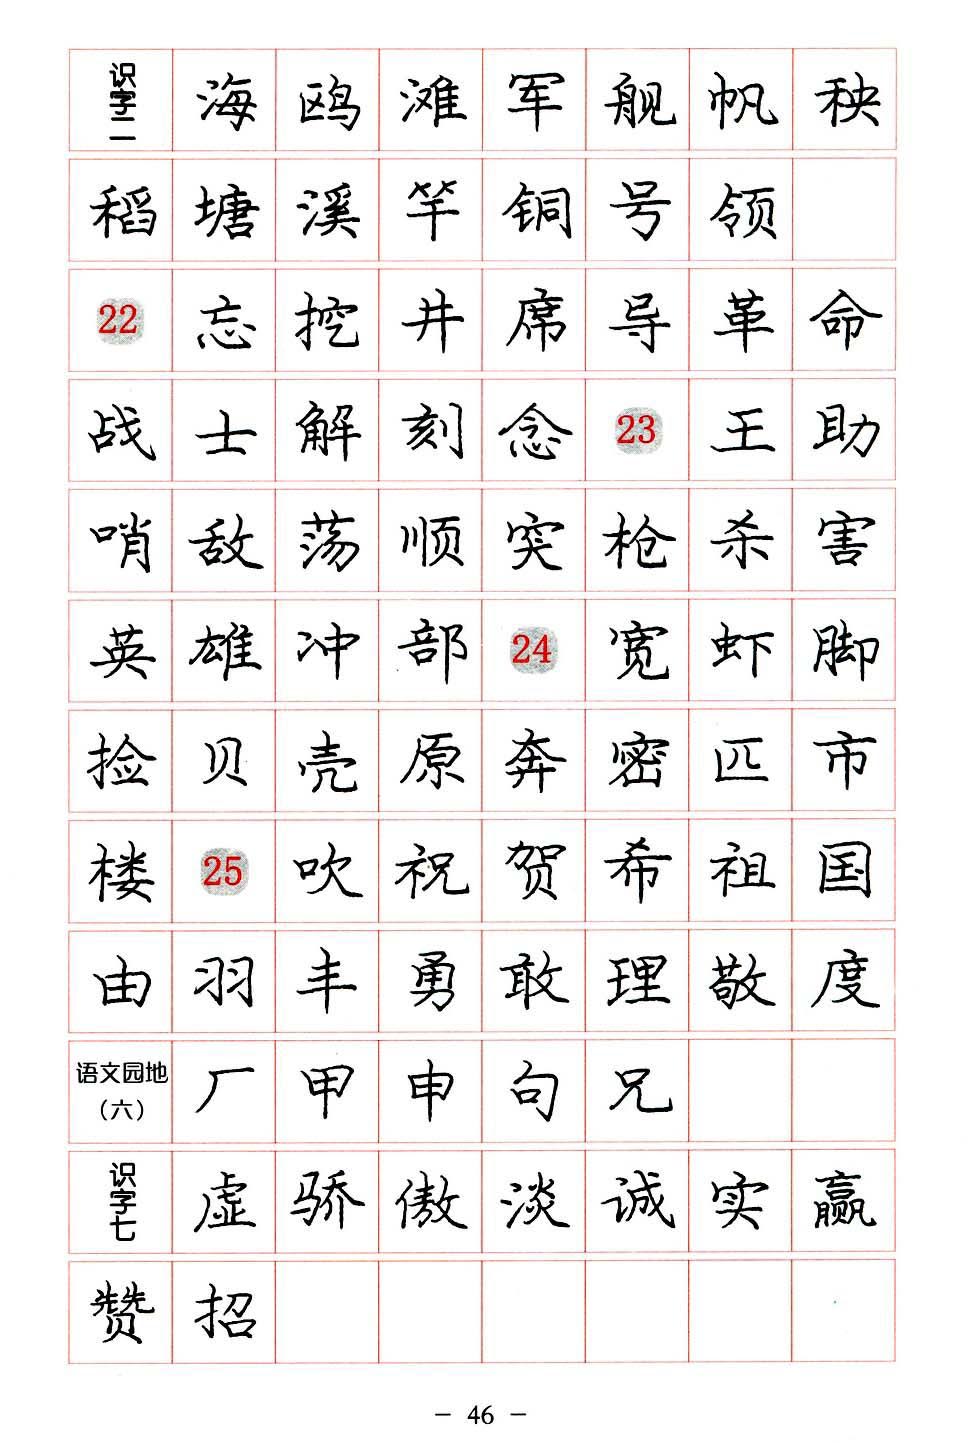 识字二 海 鸥 滩 军 舰 帆 秧
稻 塘 溪 竿 铜 号 领
22 忘 挖 井 席 导 革 命
战 士 解 刻 念 23 王 助
哨 敌 荡 顺 突 枪 杀 害
英 雄 冲 部 24 宽 虾 脚
捡 贝 壳 原 奔 密 匹 市
楼 25 吹 祝 贺 希 祖 国
由 羽 丰 勇 敢 理 敬 度
语文园地（六） 厂 甲 申 句 兄
识字七 虚 骄 傲 淡 诚 实 赢
赞 招
– 46 –